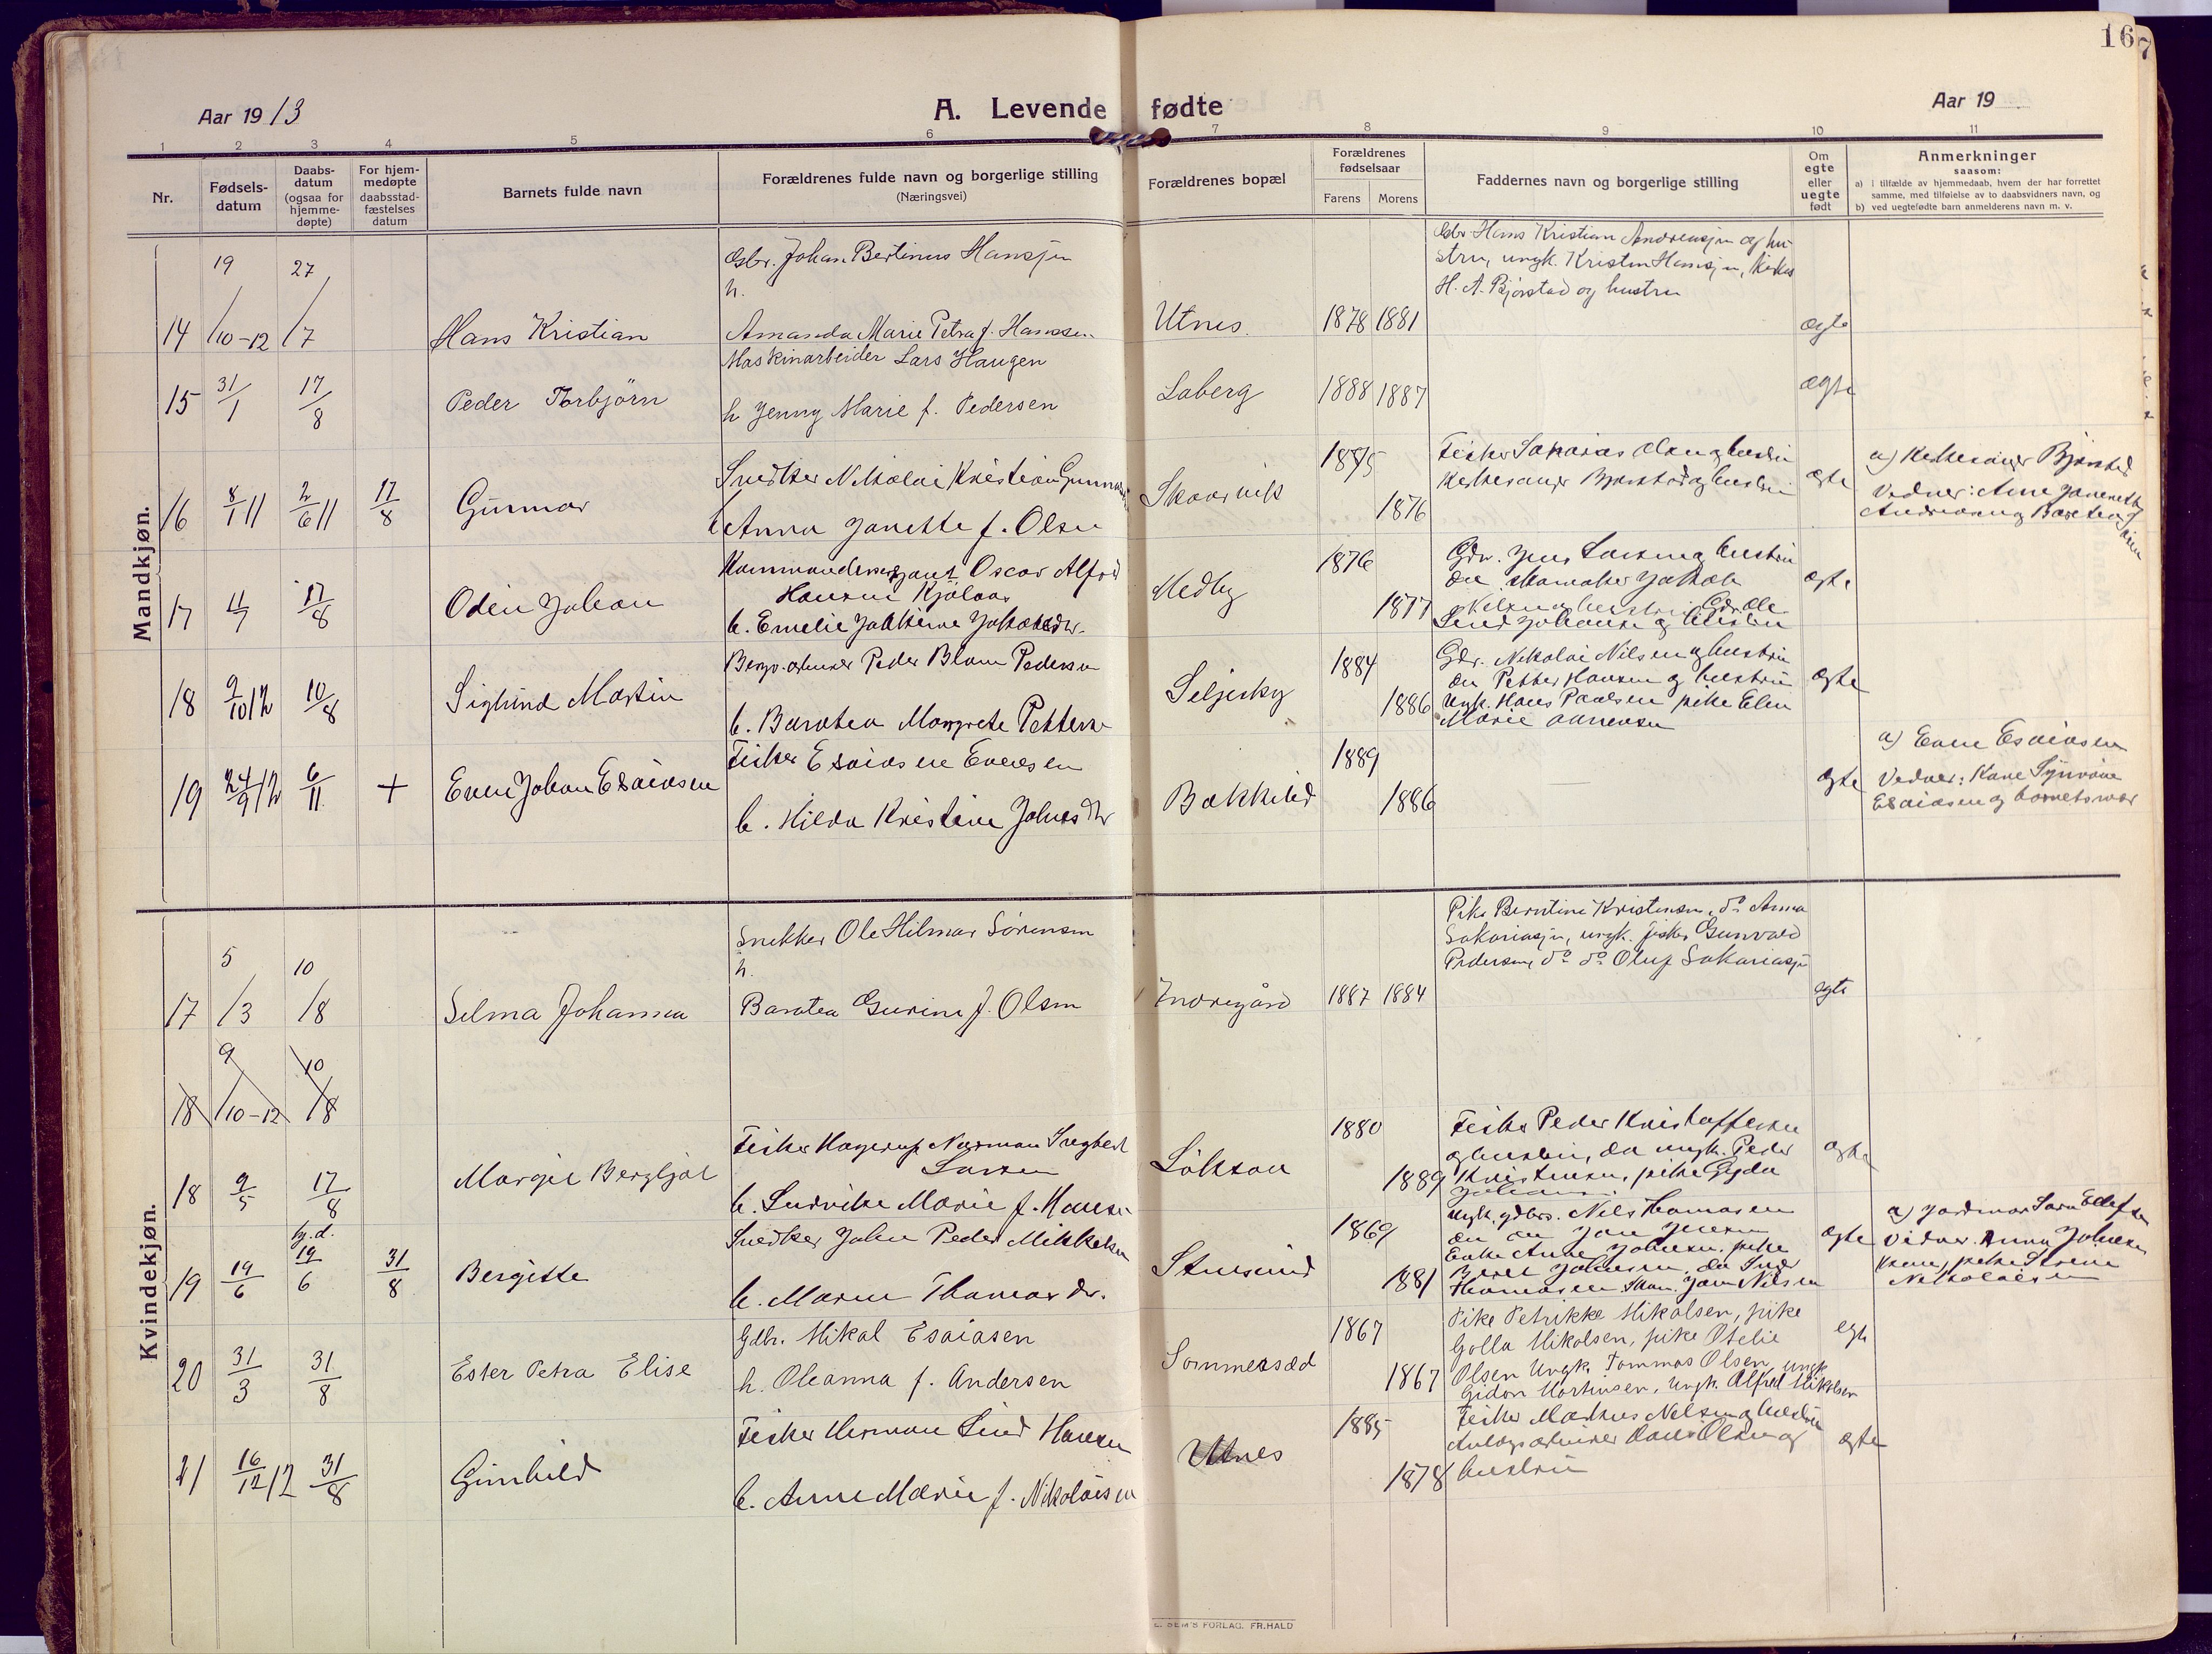 167
Aar 1913
A. Levende fødte
Aar 19
1 2 3 4 5 6 7 8 9 10 11
Nr.
Fødsels-
datum
Daabs-
datum
(ogsaa for
hjemme-
døpte)
For hjem-
medøpte
daabsstad-
fæstelses
datum
Barnets fulde navn
Forældrenes fulde navn og borgerlige stilling
(Næringsvei)
Forældrenes bopæl
Forældrenes
fødselsaar
Farens Morens
Faddernes navn og borgerlige stilling
Om
egte
eller
uegte
født
Anmerkninger
saasom:
a) i tilfælde av hjemmedaab, hvem der har forrettet
samme, med tilføielse av to daabsvidners navn, og
b) ved uegtefødte barn anmelderens navn m. v.
Mandkjøn.
14 19/10-12 27/7 Hans Kristian
Gbr. Johan Bertinus Hansen
h.
Amanda Marie Petra f. Hanssen
Utnes. 1878 1881
Gbr Hans Kristian Andreasen og hu-
stru, ungk. Kristen Hansen,
H. A. Bjørstad og hustru
ægte
15 31/1 17/8 Peder Torbjörn
Maskinarbeider Lars Haugen
h Jenny Marie f. Pedersen
Laberg 1888 1887
ægte
16 8/11 2/6 11 17/8 Gunnar
Snedker Nikolai Kristian
h Anna Janette f. Olsen
Skaarvik 1875 1876
Fisker Sakarias Olsen og hustru
Kirkesanger Bjørstad og hustru
ægte
a) Kirkesanger Bjørstad
Vidner: Ane Janette
17 4/7 17/8 Odin Johan
Kommandersergant Oscar Alfred
Hansen Kjølaas
h. Emelie Jakobine Jakobsdr.
Medby 1876 1877
Gbr. Jens Larsen og hustru
do skomaker Jakob
Nilsen og hustru, Gbr Ole
Lind Johansen og hustru
ægte
18 9/10 12 10/8 Siglund Martin
Bergv. arbeider Peder Blom Pedersen
h. Baratea Margrete Pettersen
Seljesky 1884 1886
Gbr. Nikolai Nilsen og hustru
do Petter Hansen og hustru
Ungk. Hans Paulsen pike Elen
Marie
ægte
19 24/9 12 6/11 + Even Johan Esaiasen
Fisker Esaias Evensen
h. Hilda Kristine Johnsdtr
Bakkelid 1889 1886
ægte
a) Even Esaiasen
Vidner: Kone
Esaiasen og barnets mor
Kvindekjøn.
17 5/3 10/8 Selma Johanna
Snekker Ole Hilmar Sörensen
h.
Baratea Gurine f. Olsen
Indregård 1887 1884
Pike Berntine Kristensen, do Anna
Sakariasen, ungk. fisker Gunvald
Pedersen, do do Oluf Sakariasen
egte
18 9/10-12 10/8
18 9/5 17/8 Margit Bergljot
Fisker Hagerup Norman
Larsen
h. Ludvikke Marie f. Hansen
Løksaa 1880 1889
Fisker Peder Kristoffersen
og hustru, do ungk. Peder
Kristensen, pike Gyda
ægte
19 19/6 hj.d. 19/6 31/8 Bergitte
Snedker John Peder Mikkelsen
h. Maren Thomasdr.
Stusund 1869 1881
Ungk. gdbr. Nils Thomasen
Enke Anne Johnsen, pike
Thomasen, Skom. Jon Nilsen
ægte
a) Jordmor Sara
Vidner: Anna Johnsen
Nikolaisen
20 31/3 31/8 Ester Petra Elise
Gdbr. Mikal Esaiasen
h. Oleanna f. Andersen
Sommersæd 1867 1867
Pike Petrikke Mikalsen, pike
Golla Mikalsen, pike Otelie
Olsen Ungk. Tommas Olsen, ungk.
Gidon Martinsen, Ungk. Alfred Mikalsen
egte
21 16/12 12 31/8 Gunhild
Fisker Herman Lind Hansen
h. Anne Marie f. Nikolaisen
Utnes 1885 1878
Fisker Markus Nilsen og hustru
Anlægsarbeider Olsen og
hustru
ægte
E. SEM'S FORLAG. FR.HALD